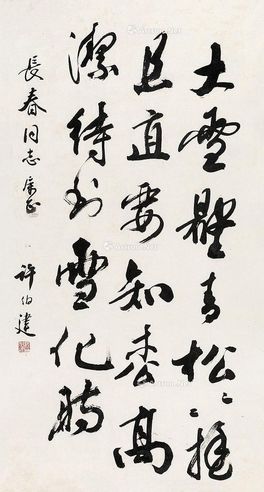 大雪壓青松〻〻挺
且直要知枩高
潔待到雪化時
長春同志屬正
許伯建